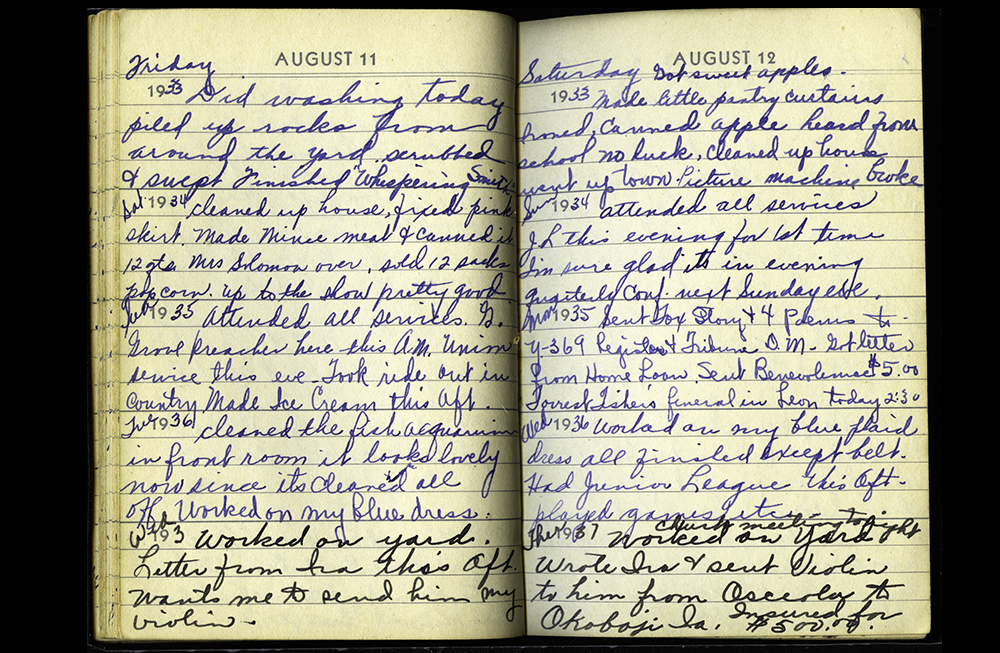 AUGUST 11
Friday
1933 Did washing today
piled up rocks from
around the yard. scrubbed
& swept Finished "Whispering Smith"
Sat 1934 cleaned up house, fixed pink
skirt. Made Mince meat & canned it
12 qts. Mrs Shomon over, sold 12 sacks
popcorn. up to the show pretty good
1935 Attended all services. G.
Grove Preacher here this A.M. Union
service this eve - Took ride out in
country Made Ice Cream this Aft.
Tue 1936 cleaned the fish acquarium
in front room it looks lovely
now since its cleaned all
off. Worked on my blue dress.
Wed 193 Worked on yard.
Letter from Ira this Aft.
Wants me to send him my
violin -
AUGUST 12
Saturday Got sweet apples.
1933 Made little pantry curtains
Ironed, Canned apple heard from
school no luck, cleaned up house
went up town Picture machine broke
Sun 1934 attended all services
J L this evening for 1st time
I'm sure glad its in evening
Quarterly Conf next Sunday eve.
Mon 1935 Sent Fox Story & 4 Poems to
Y-369 Register & Tribune D.M. - Got letter
from Home Loan. Sent Benevolence $5.00
Forrest Fisher's funeral in Leon today 2:30
Wed 1936 Worked on my blue plaid
dress all finsled except belt.
Had Junior League this Aft.
played games etc.
Church meeting tonight
Thur 1937 Worked on Yard
Wrote Ira & sent Violin
to him from Osceola to
Okoboji Ia. Insured for
$500.00.